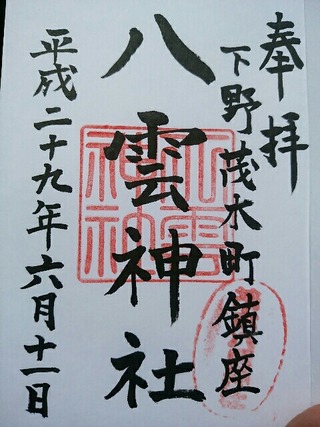 奉拝
下野茂木町鎮座
八雲神社
平成二十九年六月十一日
八雲神社